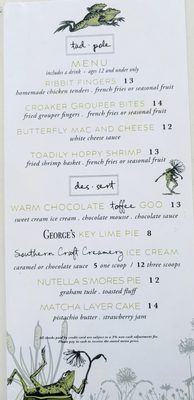 tad . pole
MENU
includes a drink - ages 12 and under only
RIBBIT FINGERS 13
homemade chicken tenders . french fries or seasonal fruit
CROAKER GROUPER BITES 14
fried grouper fingers . french fries or seasonal fruit
BUTTERFLY MAC AND CHEESE 12
white cheese sauce
TOADILY HOPPY SHRIMP 13
fried shrimp basket . french fries or seasonal fruit
des . sert
WARM CHOCOLATE toffee GOO 13
sweet cream ice cream . chocolate mousse . chocolate sauce
GEORGE'S KEY LIME PIE 8
Southern Craft Creamery ICE CREAM
caramel or chocolate sauce 5 one scoop / 12 three scoops
NUTELLA S'MORES PIE 12
graham tuile . toasted fluff
MATCHA LAYER CAKE 14
pistachio butter . strawberry jam
All checks paid by credit card are subject to a 3% non-cash adjustment fee.
Please pay in cash to receive the stated menu prices.